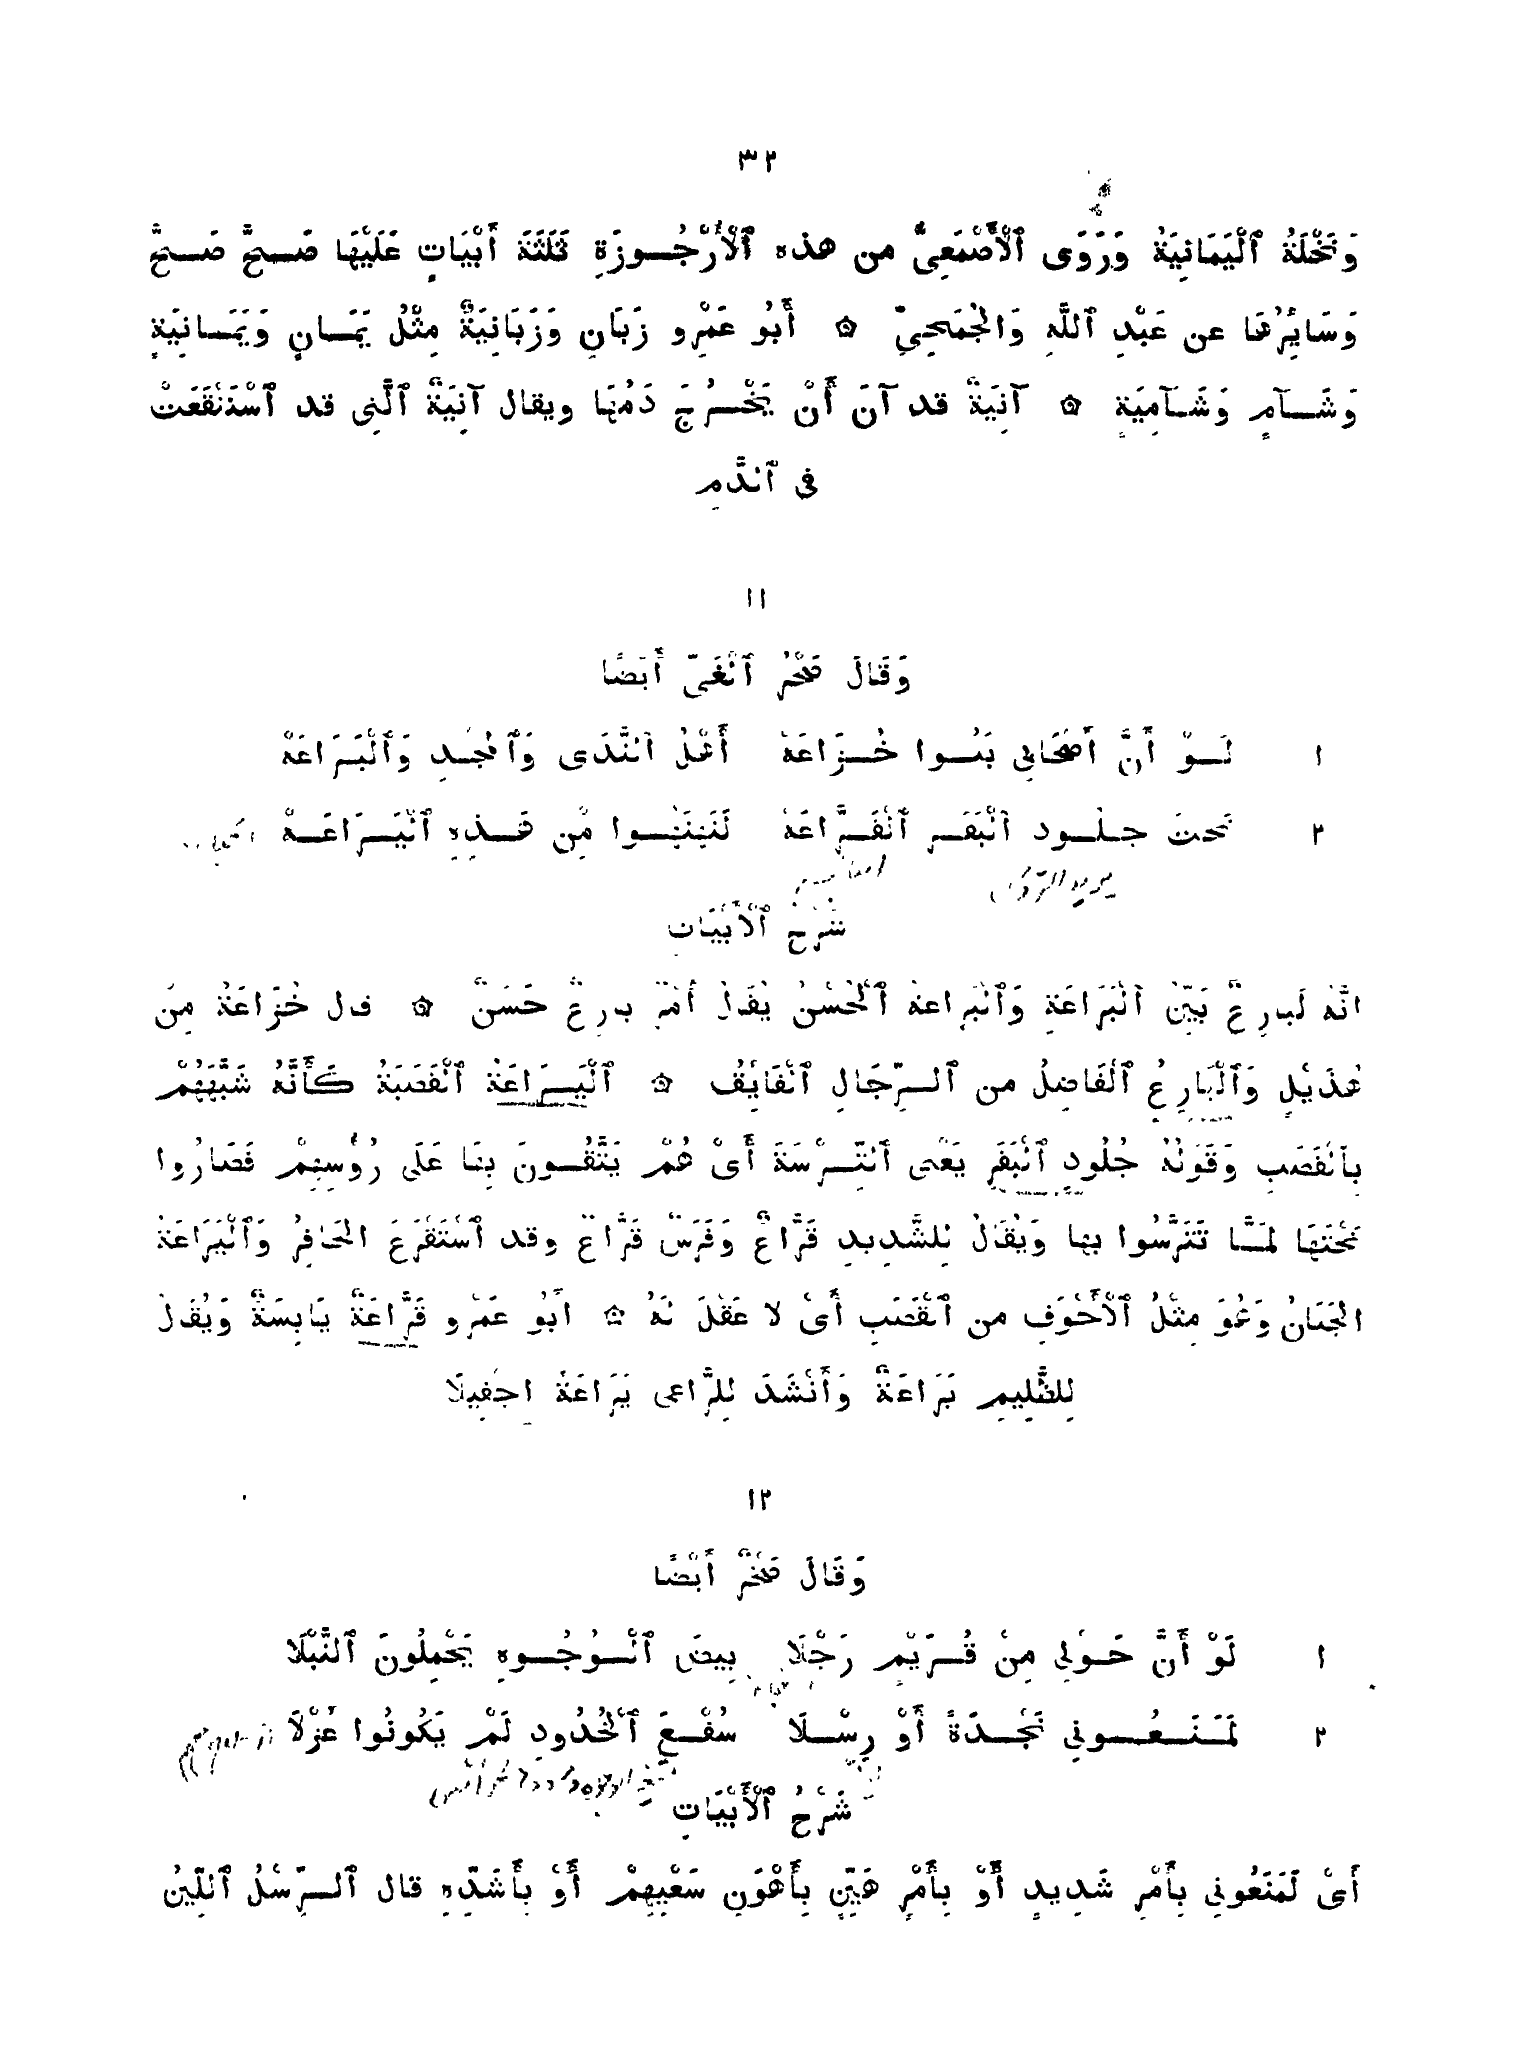 ٣٢
وَنَخْلَةُ ٱلْيَمَانِيَةُ وَرَوَى ٱلْأَصْمَعِىُّ من هذه ٱلْأُرْجُوزَةِ ثَلَثَةَ أَبْيَاتٍ عَلَيْهَا صَحَّ صَحَّ
وَسَايِرُهَا عن عَبْدِ ٱللَّهِ وَالْجُمَحِىِّ ۞ أَبُو عَمْرٍو زَبَانٍ وَزَبَانِيَةٌ مِثْلُ يَمَانٍ وَيَمَانِيَةٍ
وَشَآمٍ وَشَآمِيَةٍ ۞ آنِيَةٌ قد آنَ أَنْ يَخْرُجَ دَمُهَا ويقال آنِيَةٌ ٱلَّتِى قد ٱسْتَنْقَعَتْ
فى ٱلدَّمِ
١١
وَقَالَ صَخْرُ ٱلْغَىِّ أَيْضًا
١ لَوْ أَنَّ أَصْحَابِى بَنُوا خُزَاعَهْ أَهْلُ ٱلنَّدَى وَٱلْمَجْدِ وَٱلْبَرَاعَهْ
٢ تحتَ جلُودِ ٱلْبَقَرِ ٱلْقَرَّاعَهْ لَنَبَنَبُوا مِن هَذِهِ ٱلْيَرَاعَهْ
شَرْحُ ٱلْأَبْيَاتِ
انَّهُ لَبَارِعٌ بَيِّنُ ٱلْبَرَاعَةِ وَٱلْبَرَاعةُ ٱلْحُسْنُ يُقَالُ أَمْرٌ بَارِعٌ حَسَنٌ ۞ قال خُزَاعَةُ مِنْ
هُذَيْلٍ وَٱلْبَارِعُ ٱلْفَاضِلُ من ٱلرِّجَالِ ٱلْفَايِقُ ۞ ٱلْيَرَاعَةُ ٱلْقَصَبَةُ كَأَنَّهُ شَبَّهَهُمْ
بِٱلْقَصَبِ وَقَوْلُهُ جُلُودِ ٱلْبَقَرِ يَعْنِى ٱلتِّرْسَةَ أَىْ هُمْ يَتَّقُونَ بِهَا عَلَى رُؤُسِهِمْ فَصَارُوا
تَحْتَهَا لَمَّا تَتَرَّسُوا بها وَيُقَالُ لِلشَّدِيدِ قَرَّاعٌ وَفَرَسٌ قَرَّاعٌ وقد ٱسْتَقْرَعَ الْحَافِرُ وَٱلْيَرَاعَةُ
الْجَبَانُ وَهُوَ مِثْلُ ٱلْأَجْوَفِ من ٱلْقَصَبِ أَىْ لا عَقْلَ لَهُ ۞ ابُو عَمْرٍو قَرَّاعَةٌ يَابِسَةٌ وَيُقَالُ
لِلظَّلِيمِ يَرَاعَةٌ وَأَنْشَدَ لِلرَّاعِى يَرَاعَةً اجْفِيلَا
١٢
وَقَالَ صَخْرٌ أَيْضًا
١ لَوْ أَنَّ حَوْلِى مِنْ قُرَيْمٍ رَجْلَا بِيضَ ٱلْوُجُوهِ يَحْمِلُونَ ٱلنَّبْلَا
٢ لَمَنَعُونِى نَجْدَةً أَوْ رِسْلَا سُفْعَ ٱلْخُدُودِ لَمْ يَكُونُوا عُزْلَا
شَرْحُ ٱلْأَبْيَاتِ
أَىْ لَمَنَعُونِى بِأَمْرٍ شَدِيدٍ أَوْ بِأَمْرٍ هَيِّنٍ بِأَهْوَنِ سَعْيِهِمْ أَوْ بِأَشَدِّهِ قال ٱلرِّسْلُ ٱللِّينُ